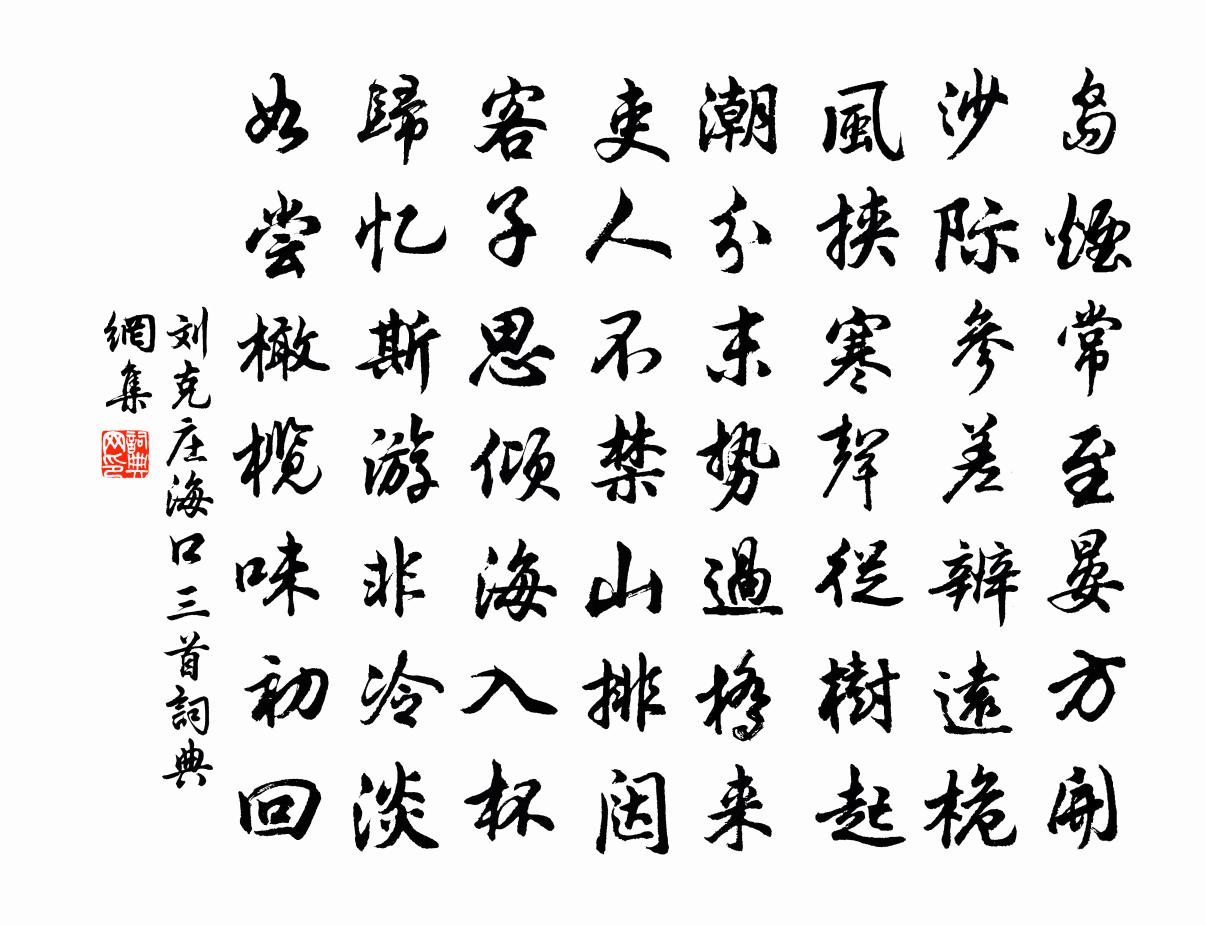 島煙常至晏方開
沙际參差辨遠桅
風挾寒聲從樹起
潮分末勢過橋來
吏人不禁山排闼
客子思倾海入杯
歸忆斯游非冷淡
如尝橄榄味初回
刘克庄海口三首詞典
網集
詞典网印